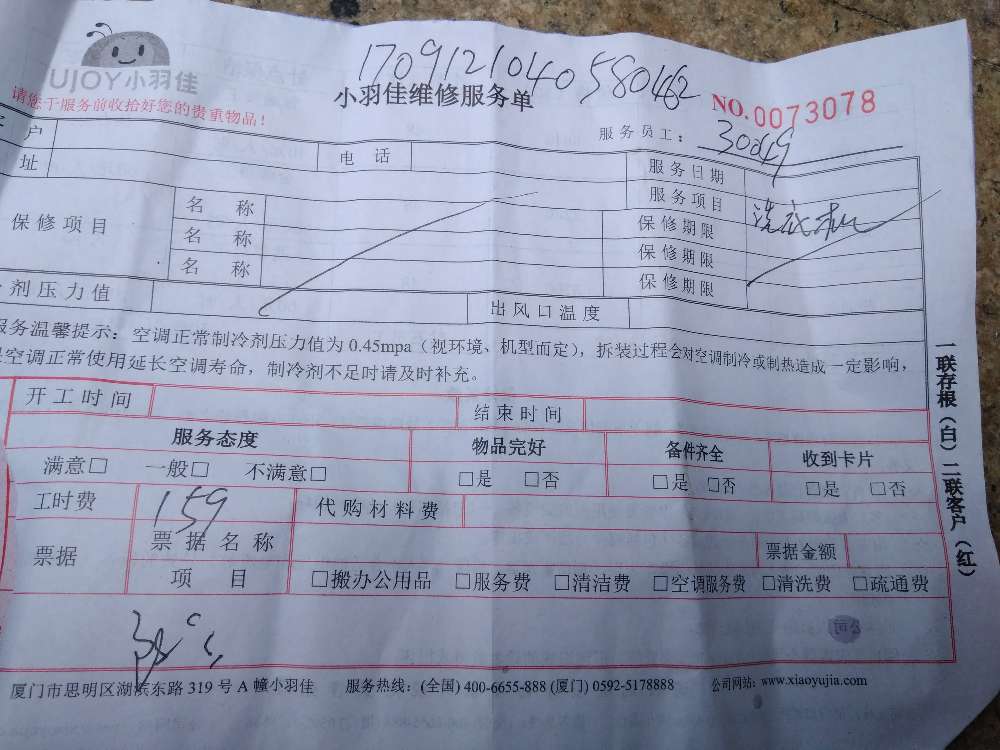 UJOY小羽佳
1709121040580462
请您于服务前收拾好您的贵重物品!
小羽佳维修服务单
NO.0073078
服务员工: 30049
户 电话 服务日期
址 服务项目 洗衣机
保修项目 名称 保修期限
名称 保修期限
名称 保修期限
剂压力值 出风口温度
服务温馨提示:空调正常制冷剂压力值为0.45mpa(视环境、机型而定),拆装过程会对空调制冷或制热造成一定影响,
空调正常使用延长空调寿命,制冷剂不足时请及时补充。
开工时间 结束时间
服务态度 物品完好 备件齐全 收到卡片
满意□ 一般□ 不满意□ □是 □否 □是 □否 □是 □否
工时费 159 代购材料费
票据 票据名称 票据金额
项目 □搬办公用品 □服务费 □清洁费 □空调服务费 □清洗费 □疏通费
一联存根(白)二联客户(红)
厦门市思明区湖滨东路319号A幢小羽佳 服务热线:(全国)400-6655-888(厦门)0592-5178888 公司网站:www.xiaoyujia.com